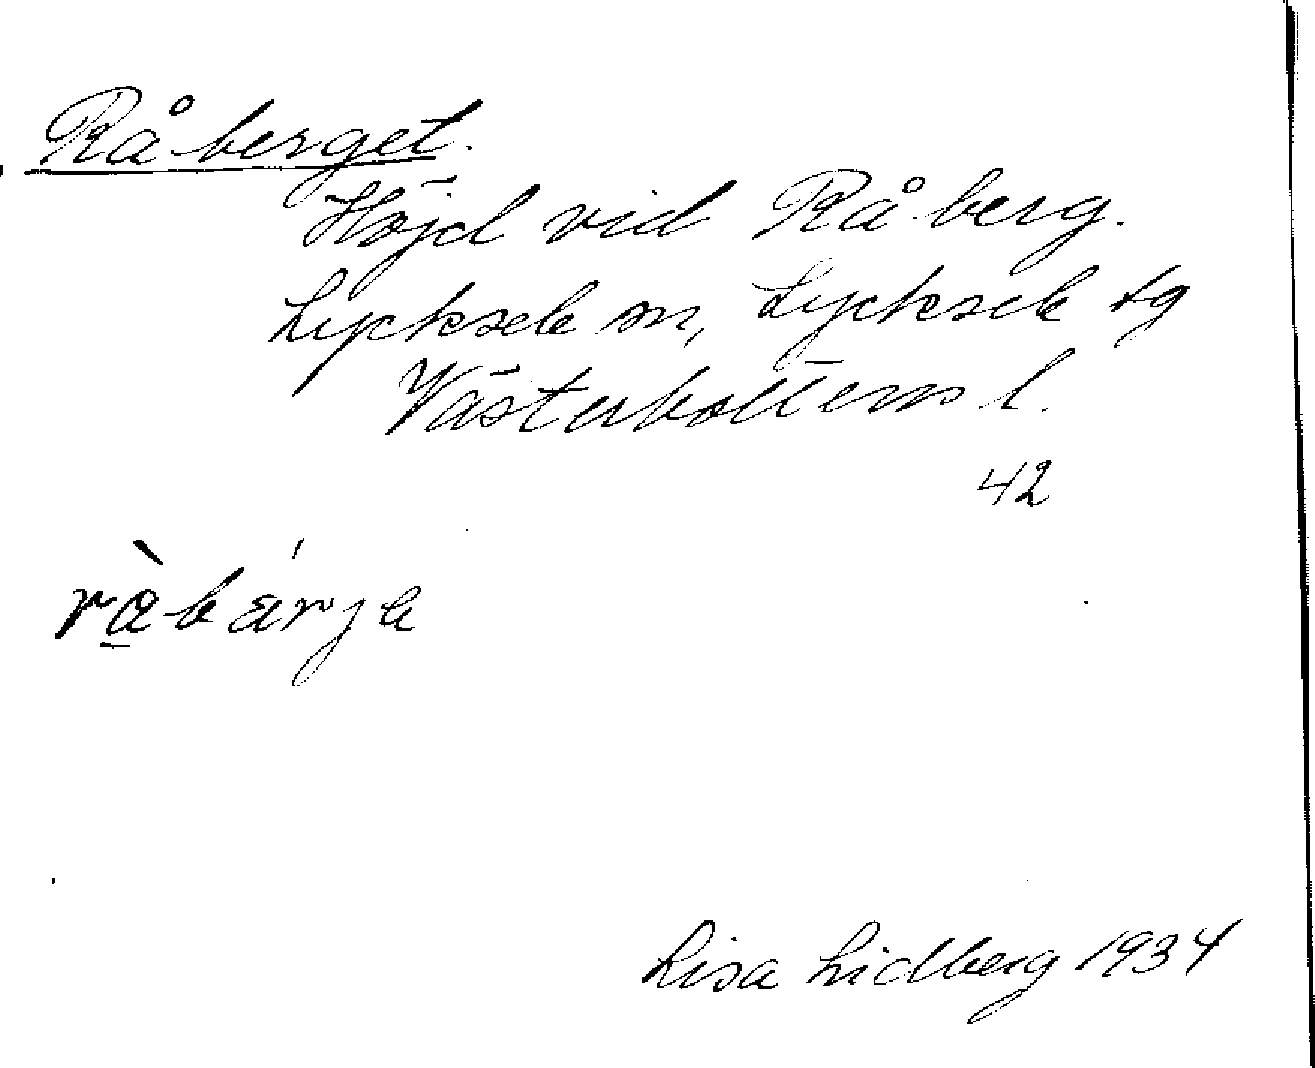 Råberget.
Höjd vid Råberg.
Lycksele sn, Lycksele tg
Västerbottens l.
42
Lisa Lidberg 1934